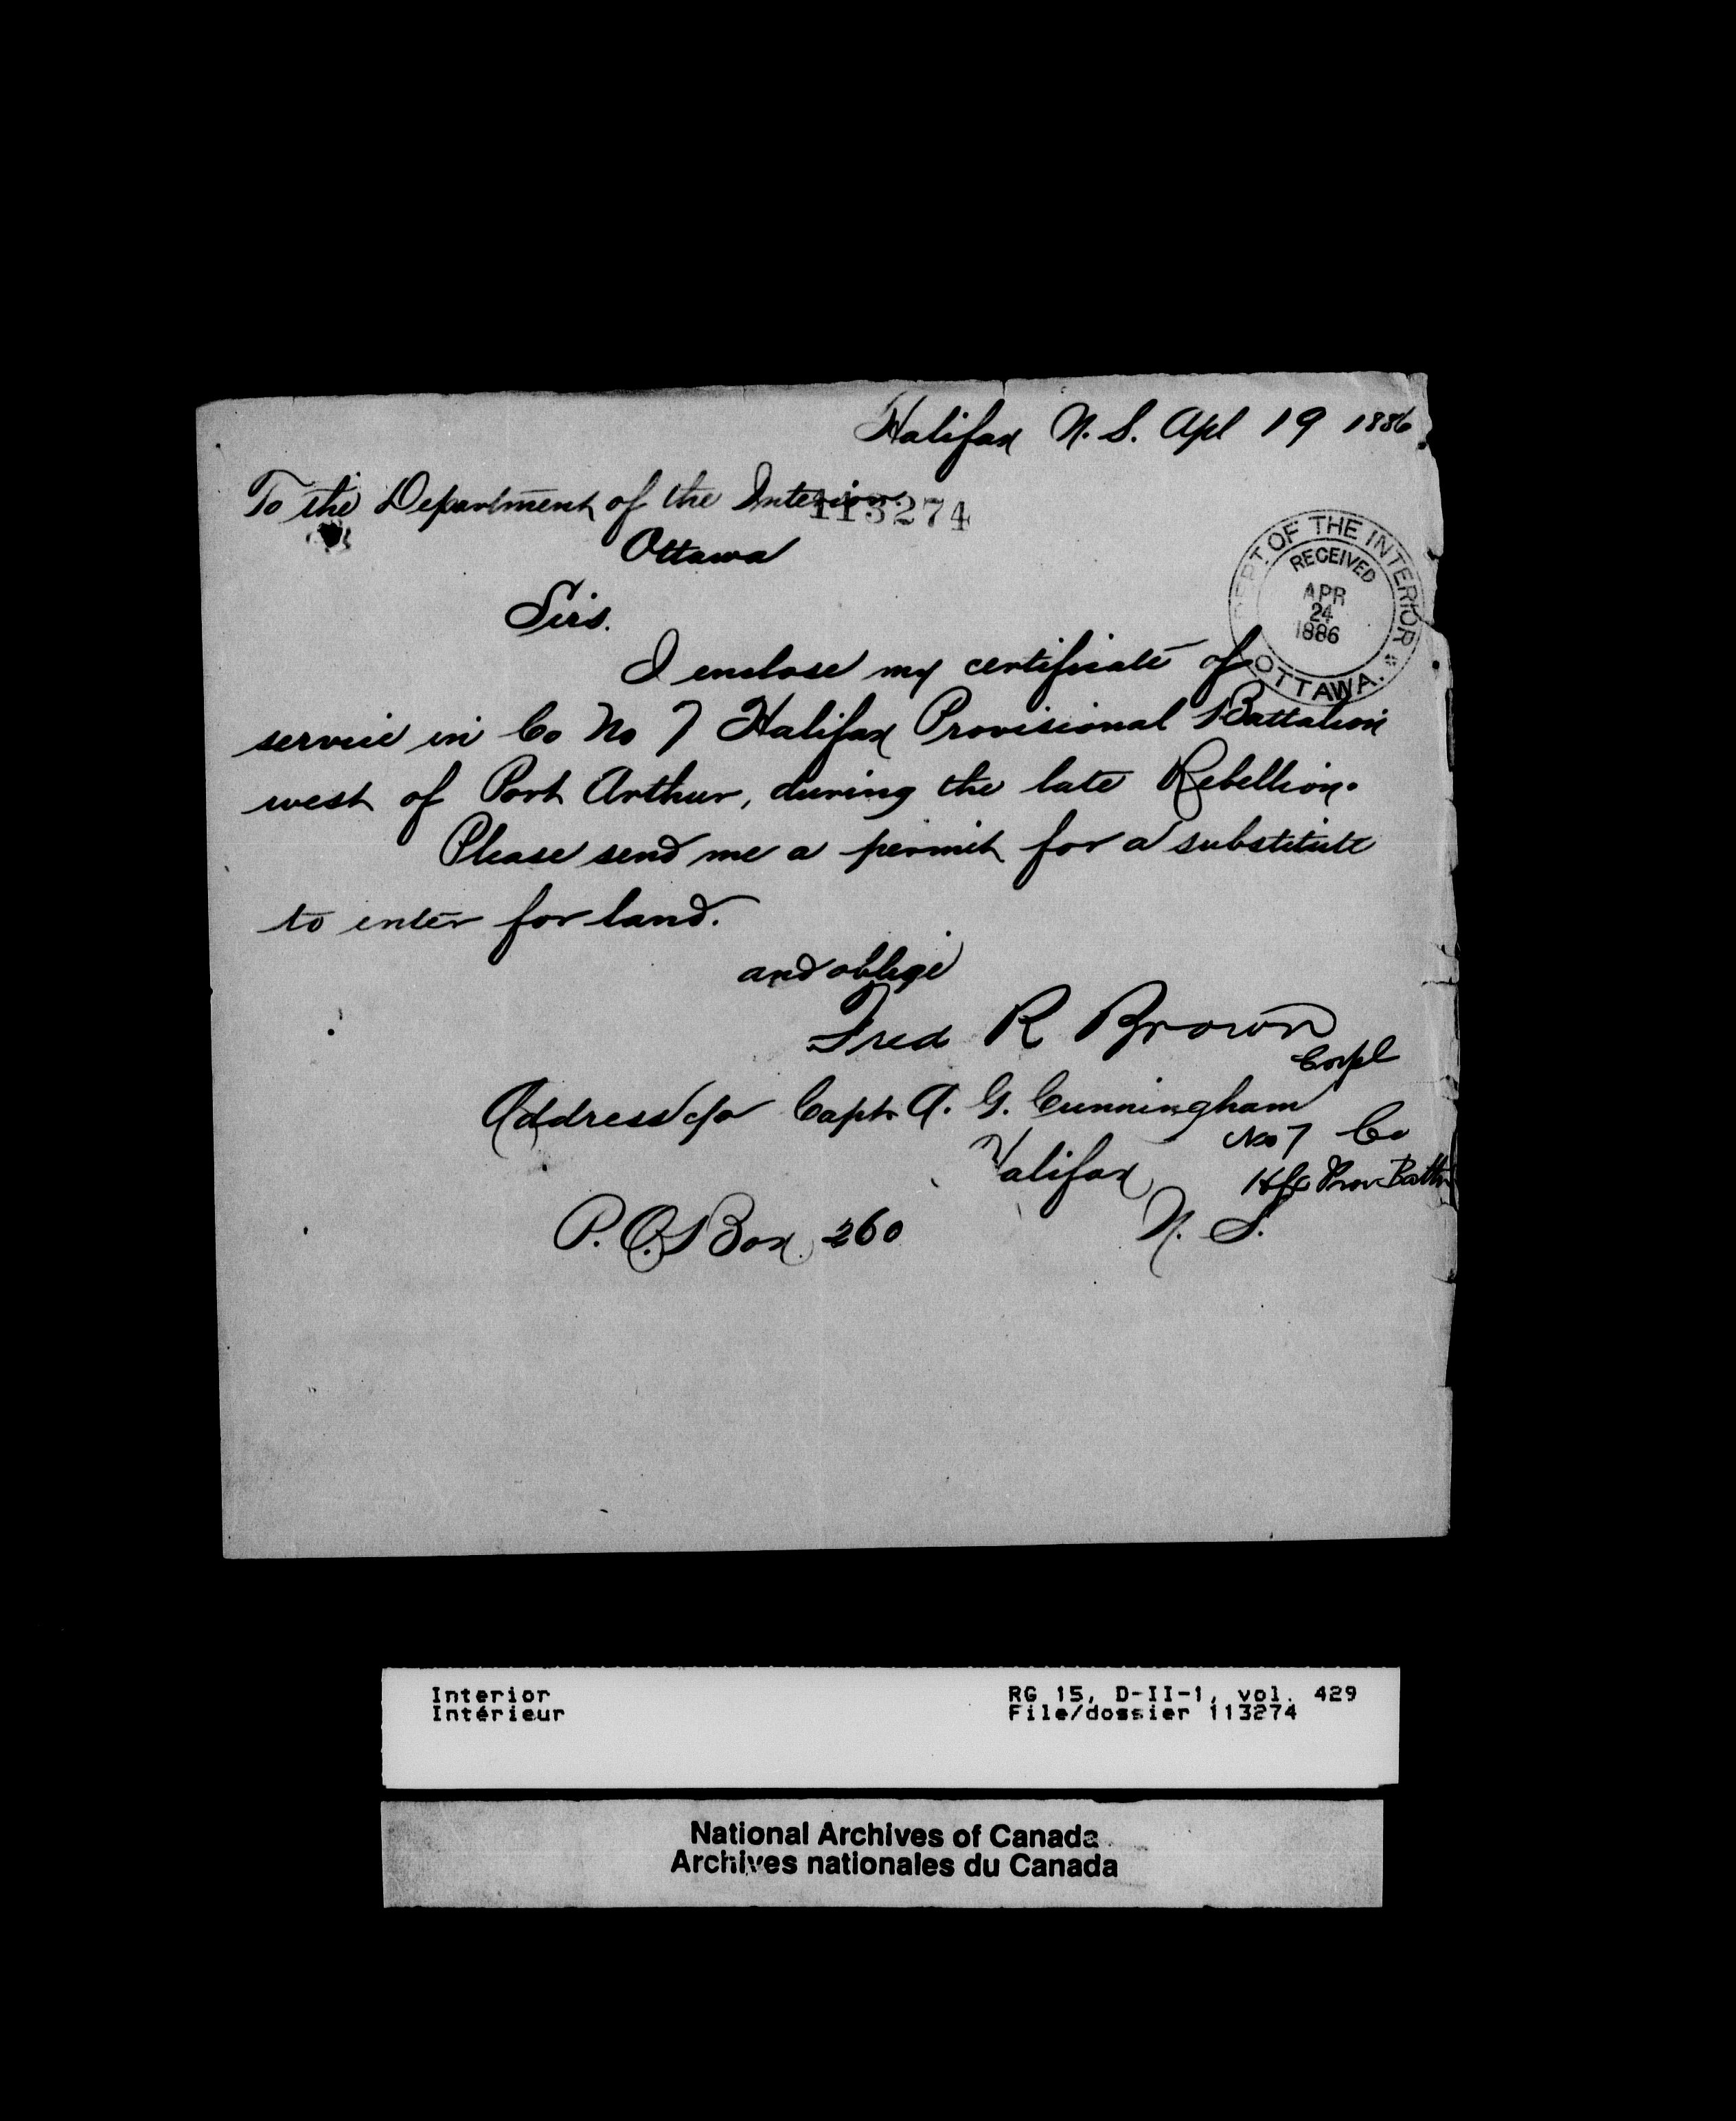 Halifax N. S. Apl 19 1886
To the Department of the Interior
113274
Ottawa
DEPT OF THE INTERIOR * OTTAWA.
RECEIVED
APR
24
1886
Sirs.
I enclose my certificate of
service in Co No 7 Halifax Provisional Battalion
west of Port Arthur, during the late Rebellion.
Please send me a permit for a substitute
to enter for land.
and oblige
Fred R Brown
Corpl
Address c/o Capt A. G. Cunningham
No 7 Co
Halifax
Hfx Prov Battn
P. O. Box 260
N. S.
Interior
Intérieur
RG 15, D-II-1, vol. 429
File/dossier 113274
National Archives of Canada
Archives nationales du Canada